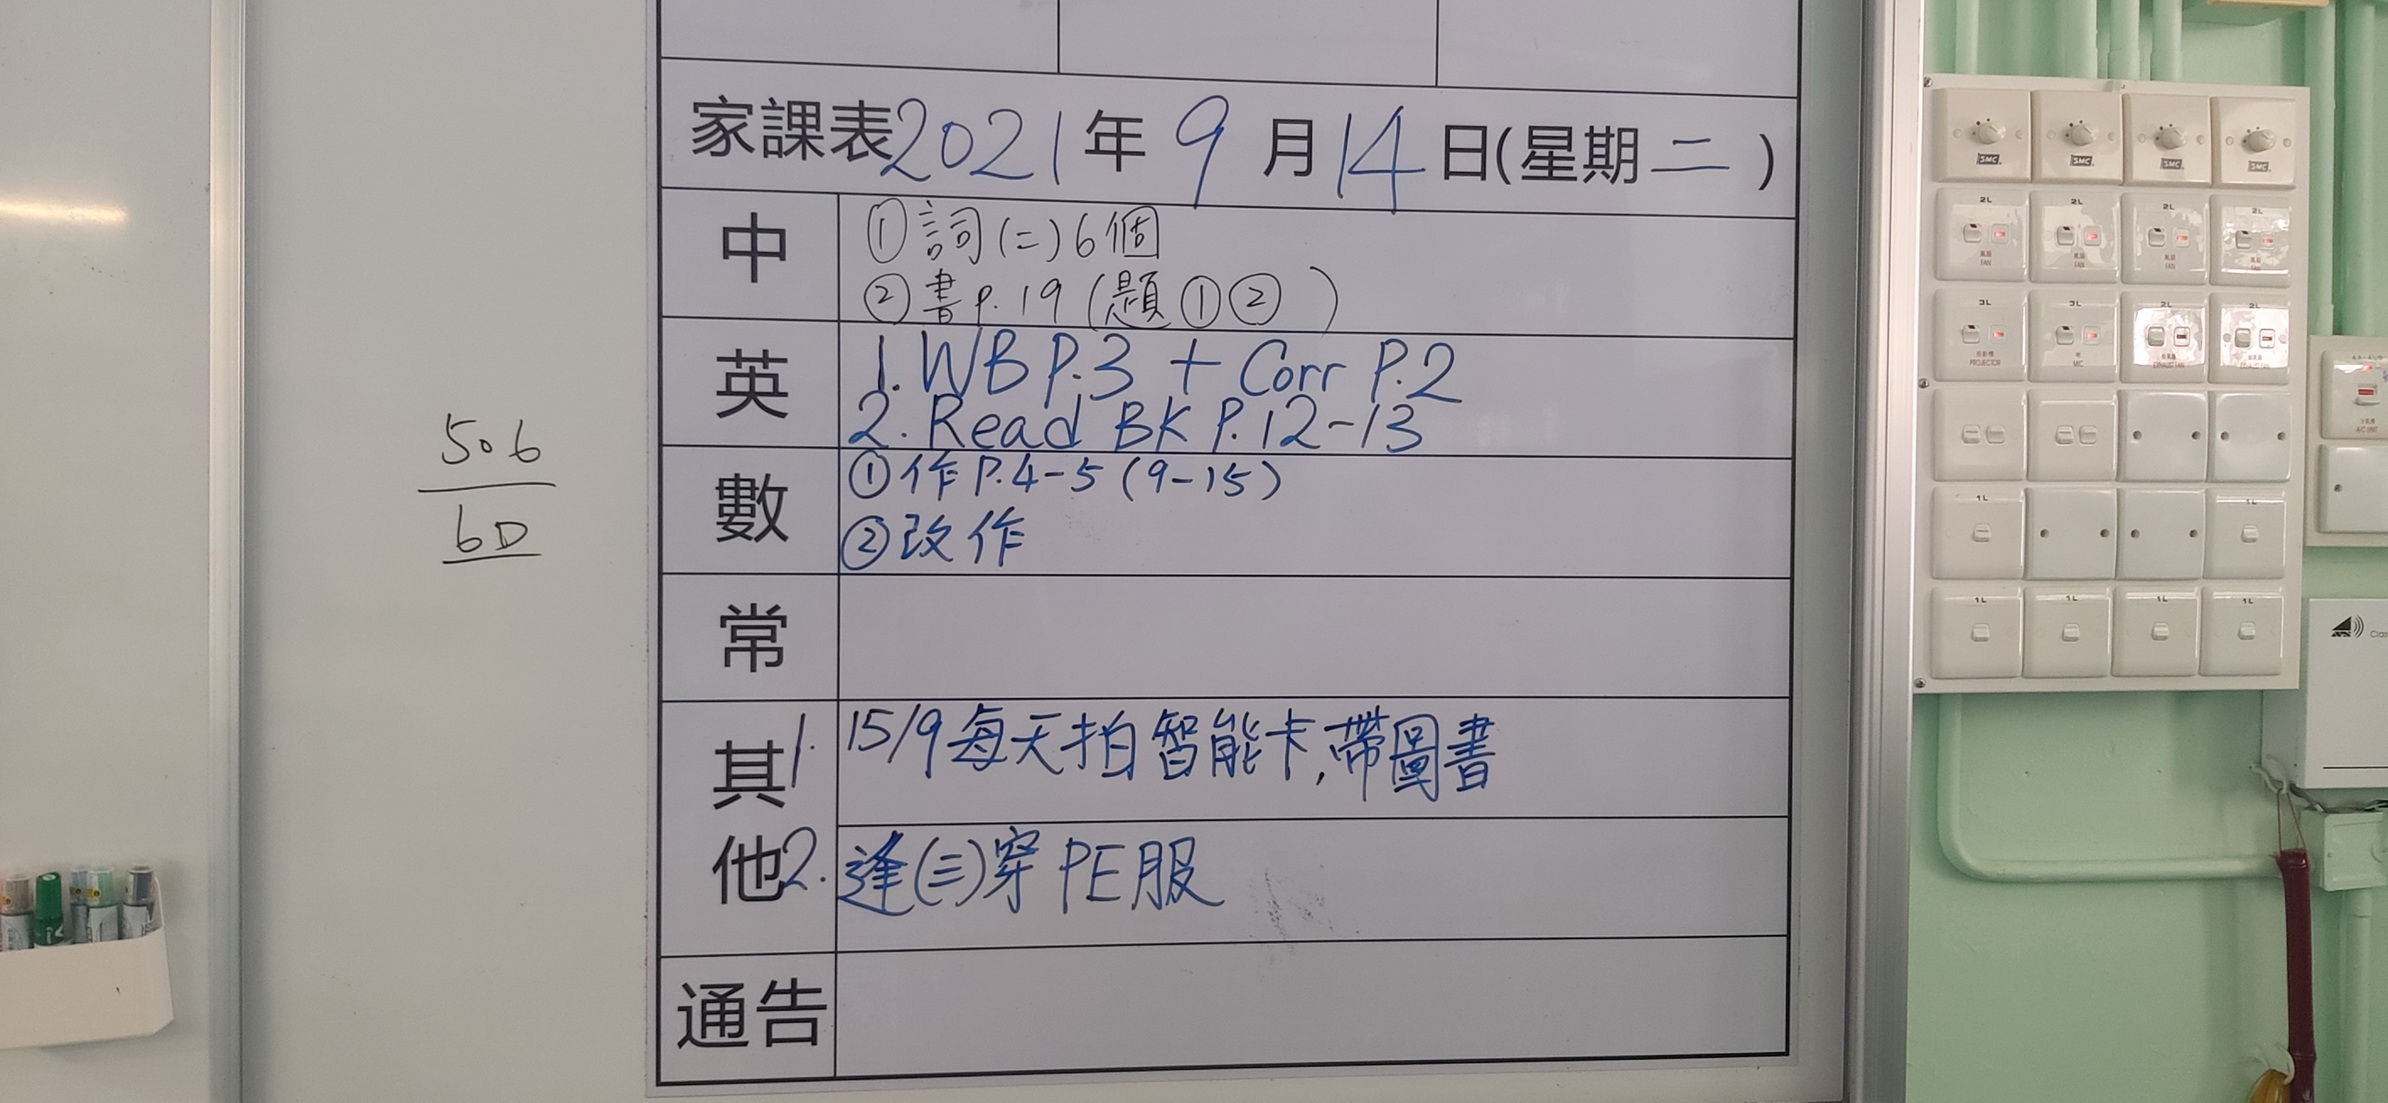 家課表2021年9月14日(星期二)
中
①詞(二)6個
②書P.19(題①②)
英
1. WB P.3 + Corr P.2
2. Read BK P.12-13
數
①作P.4-5(9-15)
②改作
常
其他
1. 15/9每天拍智能卡,帶圖書
2. 逢(三)穿PE服
通告
506
6D
SMC SMC SMC SMC
2L 2L 2L 2L
風扇 風扇 風扇 風扇
FAN FAN FAN FAN
3L 3L 2L 2L
PROJECTOR MIC EXHAUST FAN
A/C UNIT
1L 1L
1L 1L 1L 1L